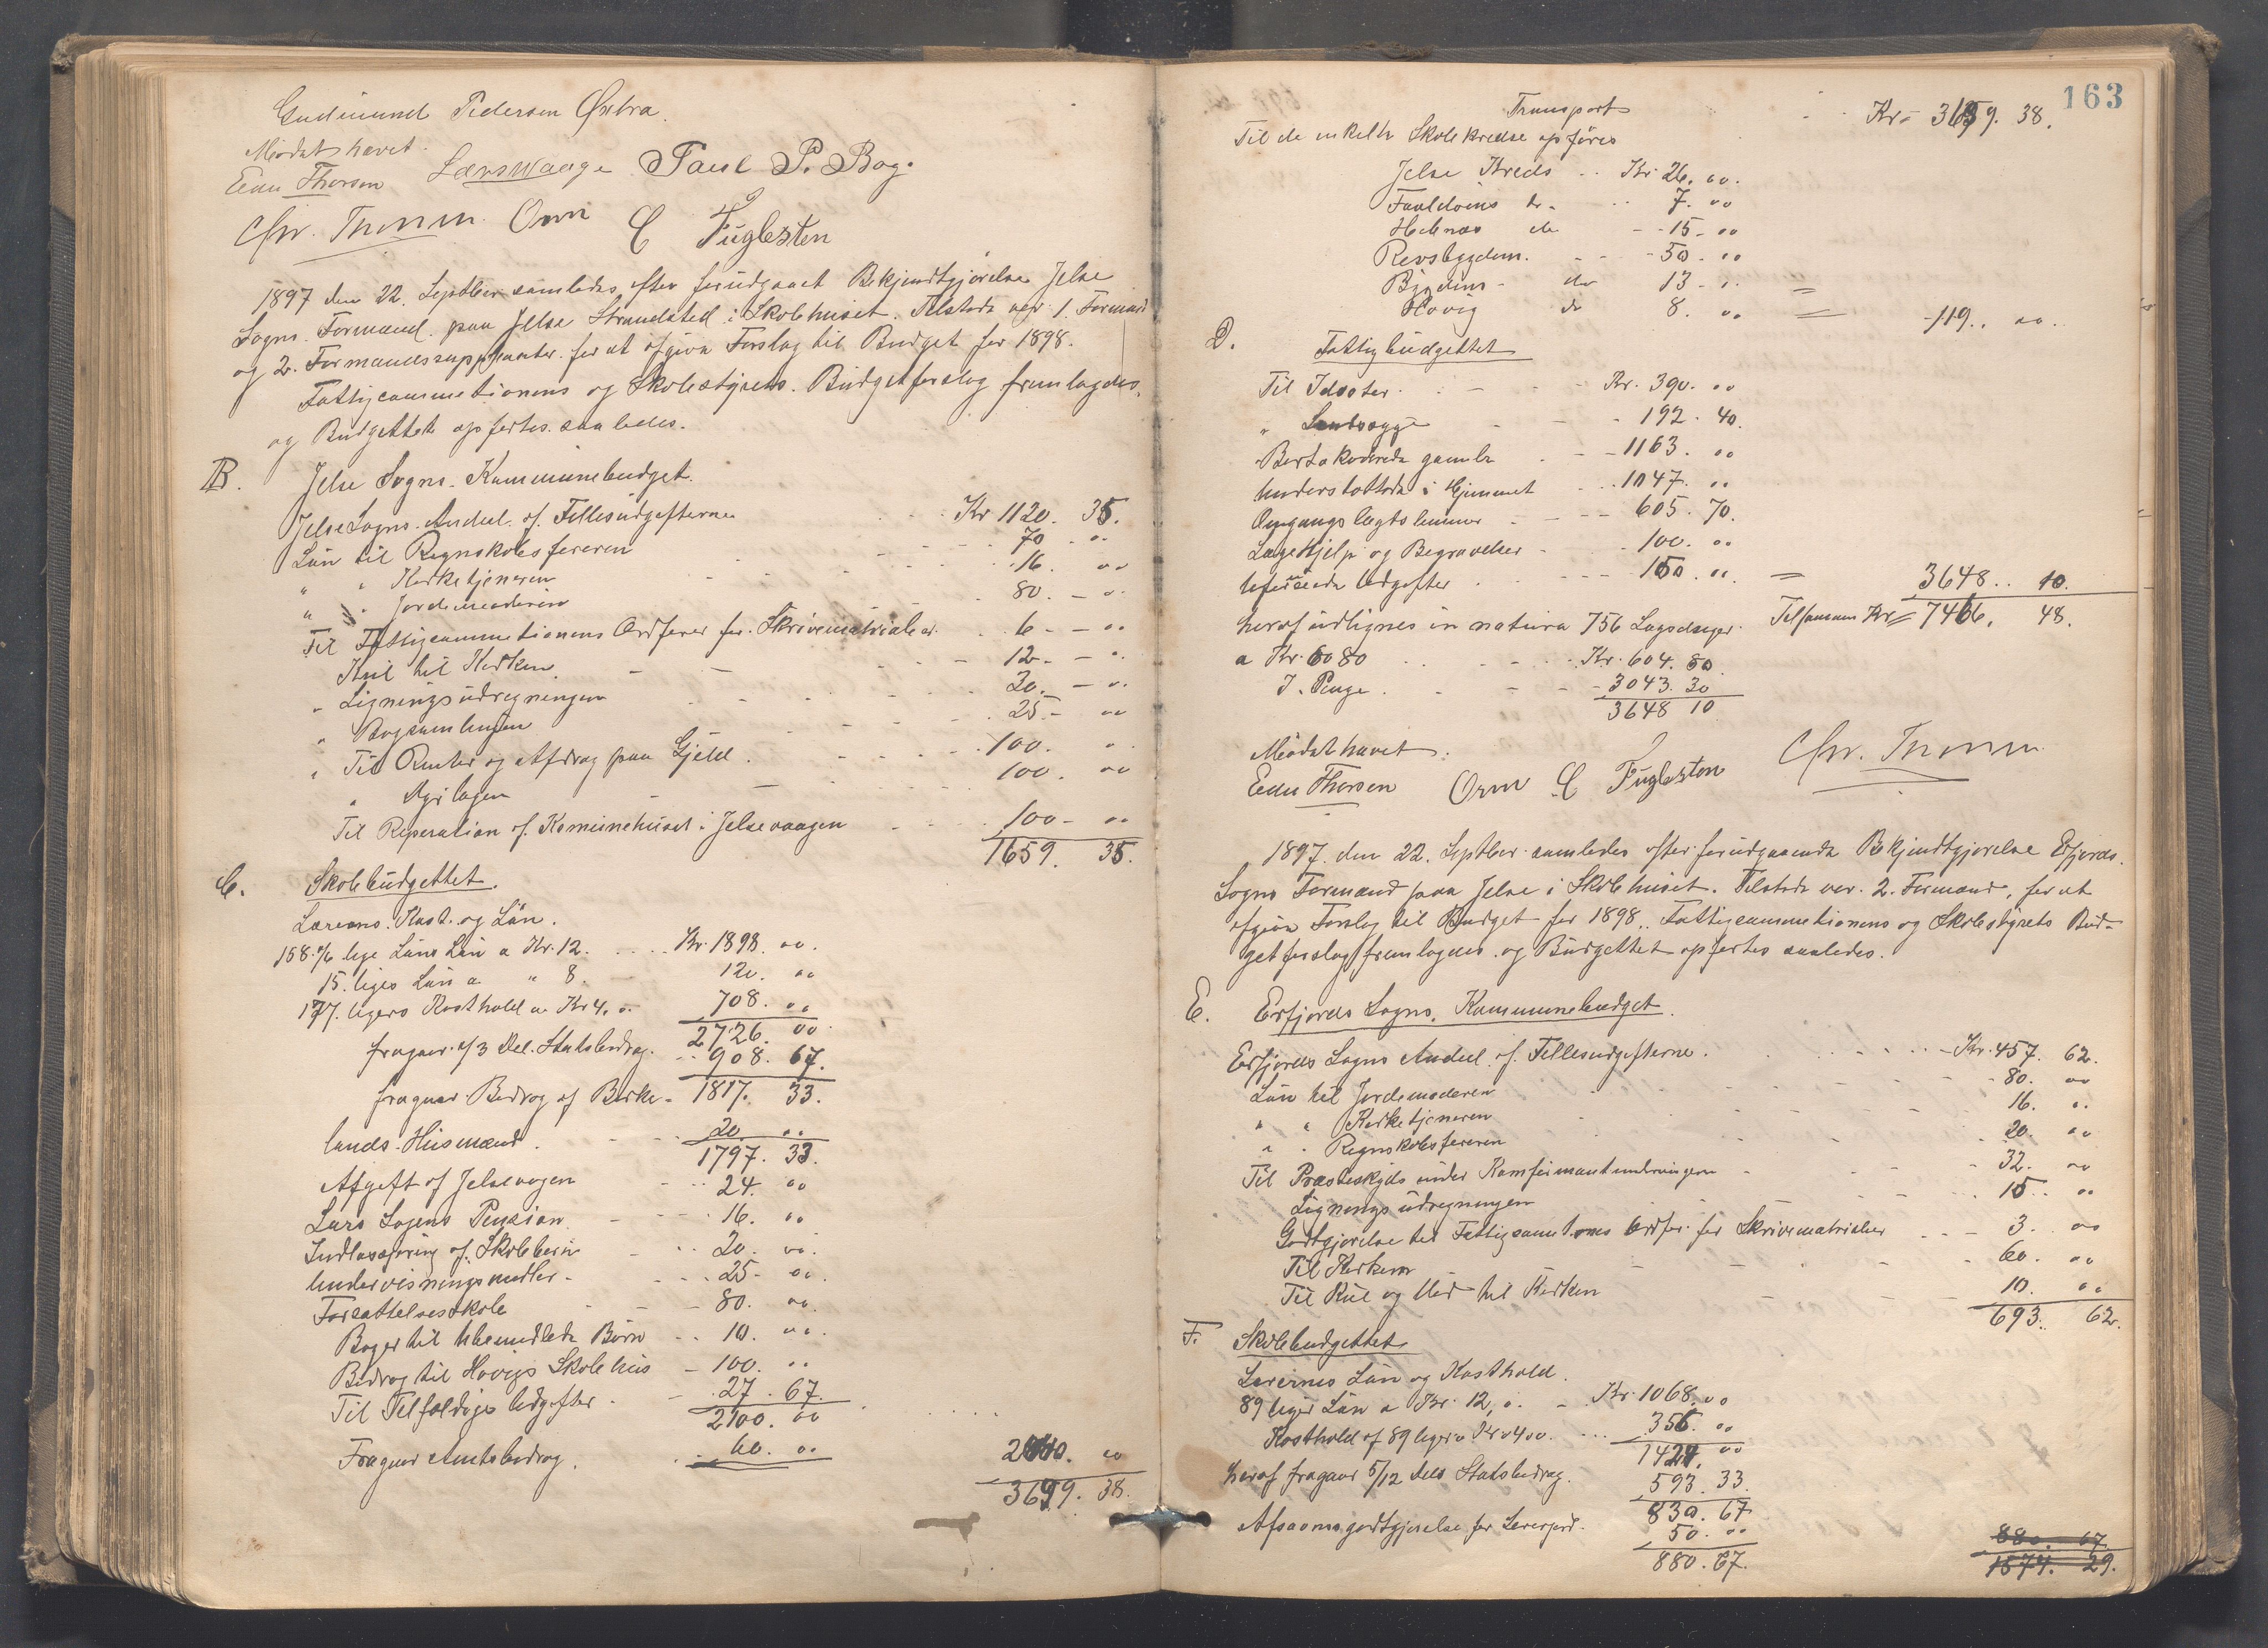 Gudmund Pedersen Østbra.
Mødet hævet.
Edu Thorsen Lars Waage Paul P. Bog.
Chr. Thorsen. Orm C Fuglesten
1897 den 22. Septber samledes efter forudgaaet Bekjendtgjørelse Jelse
Sogns Formænd paa Jelse Strandsted i Skolehuset. Tilstede var 1. Formand
og 2. Formandssuppleanter for at afgive Forslag til Budget for 1898.
Fattigcommetionens og Skolestyrets Budgetforslag fremlagdes
og Budgettet opførtes saaledes.
B. Jelse Sogns Kommunebudget.
Jelse Sogns Andeel af Fellesudgifterne Kr 1120. 35.
Løn til Regnskabsføreren 70 - 00
" " Kirketjeneren 16. 00
" " Jordemoderen 80. - 00
Til Fattigcommetionens Ordfører for Skrivematrialier 6 - - 00
Kul til Kirken 12 - - 00
" Ligningsudregningen 30. - 00
" Bogsamlingen 25 - 00
" Til Renter og Afdrag paa Gjeld 100. 00
" Dyrlægen 100. 00
Til Reperation af Komunehuset i Jelsevaagen 100 - 00
1659. 35.
C. Skolebudgettet.
Lærerns Kost. og Løn.
158 1/6 Uge Løns Løn a Kr. 12. Kr. 1898. 00.
15. Uges Løn a " 8. 120. 00
177. Ugers Kosthold a Kr 4,0 708. 00
2726. 00
fragaar 1/3 Del. Statsbidrag. 908. 67.
1817. 33.
fragaar Bidrag af Birke-
lands Husmænd. 20 00
1797. 33.
Afgift af Jelsevogen 24. 00
Lars Sagens Pension 16. 00
Indlosering af Skolebørn 20. 00.
Undervisningsmidler 25 - 00.
Forsættelsesskole 80. 00.
Bøger til Ubemidlede Børn 10. 00.
Bidrag til Hovigs Skolehus 100. 00
Til Tilfældige Udgifter 27. 67.
2100. 00
Fragaar Amtsbidrag. 60. 00 00
3699. 38.
163
Transport Kr= 38.
Til de enkelte Skolekredse opføres
Jelse Kreds Kr 26. 00.
do 7. 00
Hebnæs do 15 - 00
Revsbygden. 50. 00
do 13 - 0.
Hovig do 8. 00 = 119.. 00.
D. Fattigbudgettet
Til Idioter Kr. 390. 00
" Sindssyge 192. 40.
Bortakorderede gamle 1163. 00
Understøttede i Hjemmet 1047. 00
Omgangs lægtslemmer 605. 70.
Lægehjelp og Begravelser 100. 00
Uforseede Udgifter 150. 00. = 3648.. 10.
Tilsammen Kr= 7466. 48.
heraf udlignes in natura 756 Lægsdager
a Kr. 0 80 Kr. 604. 80
I. Penge 3043. 30
3648 10
Mødet hævet.
Edu Thorsen Orm C Fuglesten Chr. Thorsen
1897. den 22. Septber samledes efter forudgaaende Bekjendtgjørelse Erfjords
Sogns Formænd paa Jelse i Skolehuset. Tilstede var 2. Formænd, for at
afgive Forslag til Budget for 1898.. Fattigcommetionens og Skolestyrets Bud-
getforslag fremlagdes og Budgettet opførtes saaledes.
E. Erfjords Sogns. Kommunebudget.
Erfjords Sogns Andeel af Fellesudgifterne. Kr. 457. 62.
Løn til Jordemoderen 80. 00
" " Kirketjeneren 16. 0.
" " Regnskabsføreren 20. 00
Til Præsteskyds under Komfirmantundervisningen 32. 00
Ligningsudregningen 15.. 00
Godtgjørelse til Fattigcommtions Ordfør. for Skrivematrialier 3. 00
Til Kirken 60. 00
Til Kul og Ved til Kirken 10. 00
693.. 62.
F. Skolebudgettet
Lærernes Løn og Kosthold.
89 Uger Løn a Kr. 12,0. Kr. 1068. 00
Kosthold af 89 Uger a Kr 4 00. 356. 00
1424. 00
heraf fragaar 5/12 Dels Statsbidrag. 593. 33.
830. 67
Afsavnsgodtgjørelse for Lærerjord. 50. 00
880. 67. 880. 67.
1574. 29.